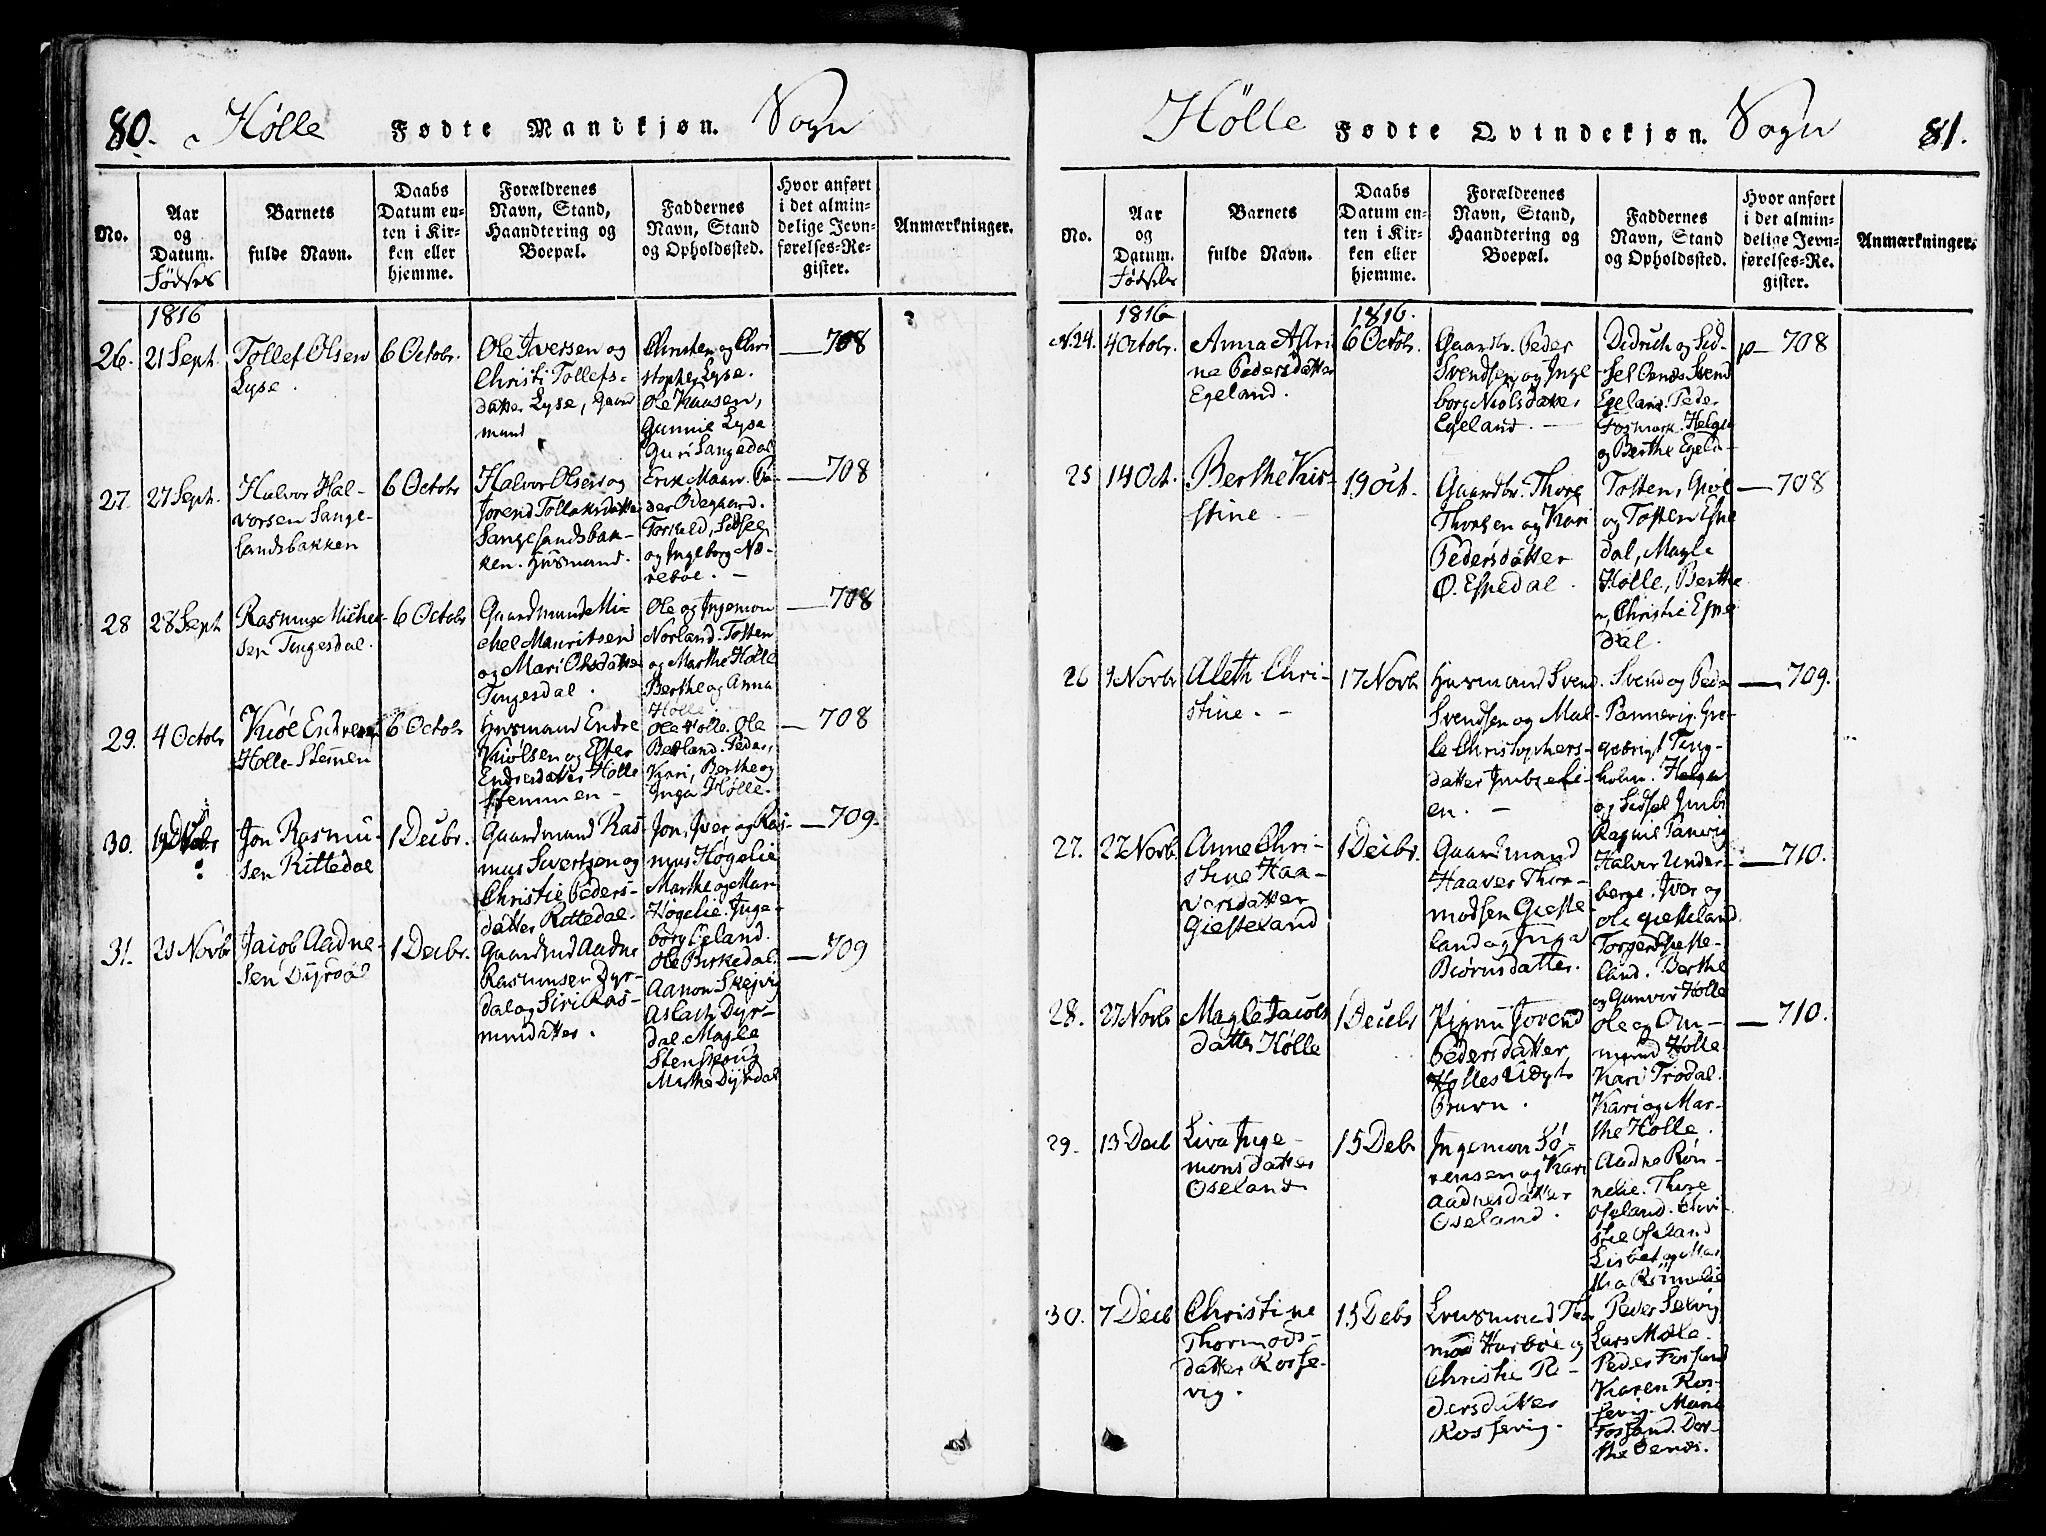 80. Hølle Fødte Mandkjøn. Sogn
No.
Aar
og
Datum.
Fødsels
Barnets
fulde Navn.
Daabs
Datum en-
ten i Kir-
ken eller
hjemme.
Forældrenes
Navn, Stand,
Haandtering og
Boepæl.
Faddernes
Navn, Stand
og Opholdssted.
Hvor anført
i det almin-
delige Jevn-
førelses-Re-
gister.
Anmærkninger.
1816
26. 21 Sept.
Tollef Olsen
Lyse.
6 Octobr.
Ole Iversen og
Christi Tollefs-
datter Lyse, Gaard
mand
Christen og Chri
stopher Lyse.
Gunnil Lyse
Guri Sangesdal
708
27. 27 Sept.
Halvor Hal-
vorsen Sange-
landsbakken
6 Octobr
Halvor Olsen og
Jorend Tollaksdatter
Sangelandsbak-
ken. Husmand.
der Ødegaard.
og Ingeborg Næ-
reboe. -
708
28 28 Sept
Rasmus Michel-
sen Tingesdal.
6 Octobr
Gaardmand Mi-
chel Mauritsen
og Mari Olsdatter
Tingesdal.
Ole og Ingemon
Norland. Tosten
og Marthe Hølle
Berthe og Anna
Hølle.
708
29. 4 Octobr
Kiøl Endresen
Hølle-Stemmen
6 Octobr
Husmand Endre
Kiølsen og Ester
Endresdatter Hølle
stemmen -
Ole Hølle. Ole
Berland. Peder,
Kari, Berthe og
Inga Hølle.
708
30.
Jon Rasmu-
sen Rittedal
1 Decbr.
Gaardmand Ras-
mus Sivertsen og
Christie Peders-
datter Rittedal.
Jon, Iver og Ras-
mus Høgelie
Marthe og Mari
Høgelie. Inge-
borg Eieland.
709.
31. 21 Novbr
Jacob Aadne-
sen Dyrdal
1 Decbr.
Gaardmd Aadne
Rasmusen Dyr-
dal og Siri Ras-
musdatter.
Ole Birkedal.
Aanon Skejvig
Aslach Dyr-
dal. Magle
Marthe Dyrdal
709
Hølle Fødte Qvindekjøn. Sogn 81.
No.
Aar
og
Datum.
Fødsels
Barnets
fulde Navn.
Daabs
Datum en-
ten i Kir-
ken eller
hjemme.
Forældrenes
Navn, Stand,
Haandtering og
Boepæl.
Faddernes
Navn, Stand
og Opholdssted.
Hvor anført
i det almin-
delige Jevn-
førelses-Re-
gister.
Anmærkninger.
1816 1816.
N. 24. 4 Octobr.
Anna Astri
ne Pedersdatter
Egeland.
6 Octobr.
Gaardbr. Peder
Svendsen og Inge
borg Nielsdatter
Egeland. -
Didrich og Sid-
sel Oenæs Svend
Egeland. Peder
Fosmark. Helga
og Berthe Egeld-
708
25 14 Oct.
Berthe Kir-
stine. -
19 Oct.
Gaardbr. Thore
Thorsen og Kari
Pedersdatter
Ø. Espedal.
Tosten, Giøe
og Tosten Espe
dal, Magle
Hølle, Berthe
og Christie Espe
dal.
708
26 9 Novbr
Aleth Chri-
stine. -
17 Novbr
Husmand Svend
Svendsen og Mal-
le Christophers-
datter Imbseli-
en. -
Svend og Peder
Pannevig. Gre-
holm. Helga
og Sidsel Imbs
709.
27. 27 Novb.
Anne Chri-
stine Haa-
vorsdatter
Giesteland
1 Decbr.
Gaardmand
Haaver Thor-
modsen Gieste-
land og Inga
Biørnsdatter.
Ragnil Panevig
Halvor Under-
berge. Iver og
Ole Giesteland
Torger Gieste-
land. Berthe
og Gunvor Hølle
710.
28. 27 Novbr
Magle Jacobs
datter Hølle
1 Decbr
Pigen Jorend
Pedersdatter
Ole og Om-
mund Hølle.
Kari Trodal.
Kari og Mar-
the Hølle.
710.
29. 13 Decb
Liva Inge-
monsdatter
Oseland
15 Debr
Ingemon Sø-
rensen og Kari
Aadnesdatter
Oseland.
Aadne Røn-
nelie. Thore
Oseland. Chri-
stie Oseland
Lisbet og Mar
tha Rønnelie
30. 7 Decb
Christine
Thormods-
datter Rosse-
vig.
15 Debr
Christie Pe-
dersdatter
Rossevig.
Peder Selvig
Lars Mæle.
Peder Fossand
Karen Ros-
sevig. Mari
Fossand. Dor-
the Oenæs.